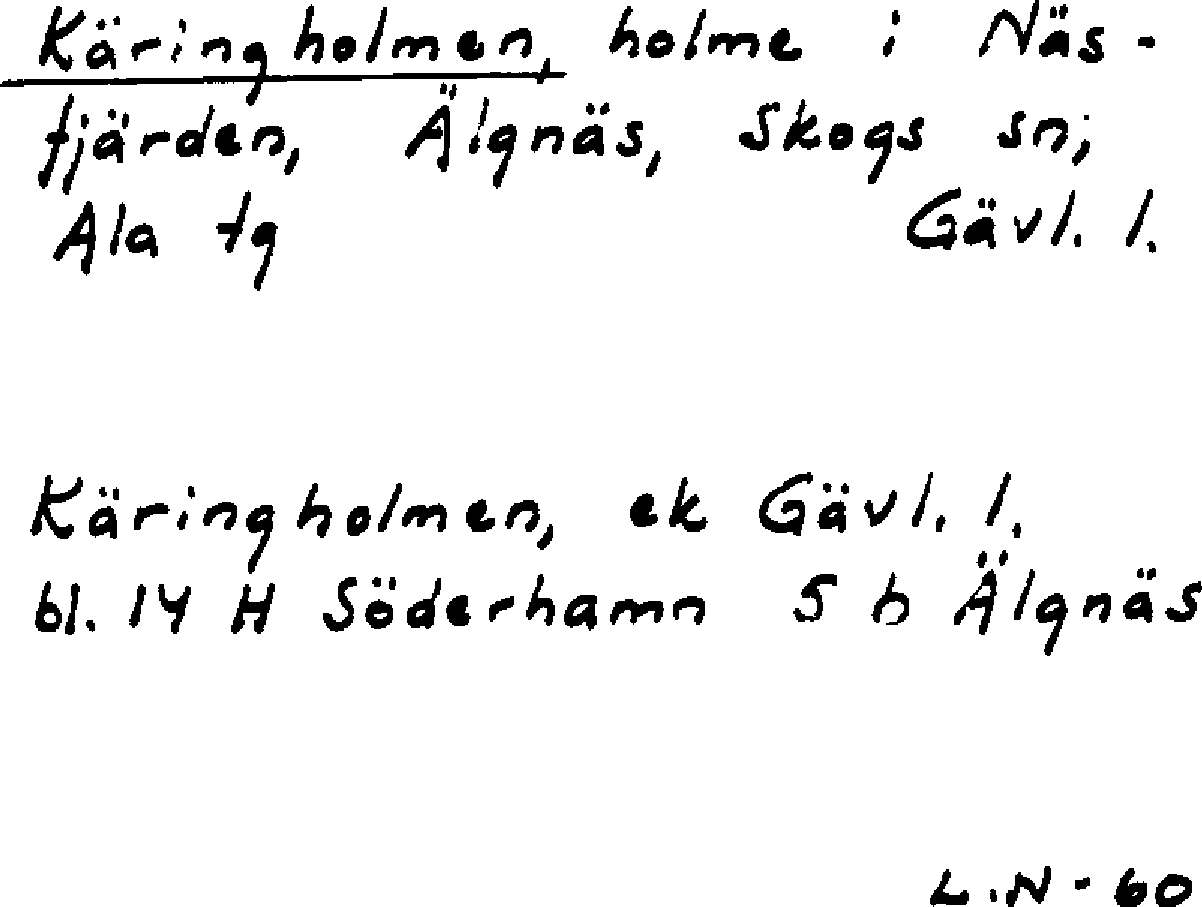 Käringholmen, holme i Näs-
fjärden, Älgnäs, Skogs sn;
Ala tg Gävl. l.
Käringholmen, ek Gävl. l.
bl. 14 H Söderhamn 5 b Älgnäs
L.N-60